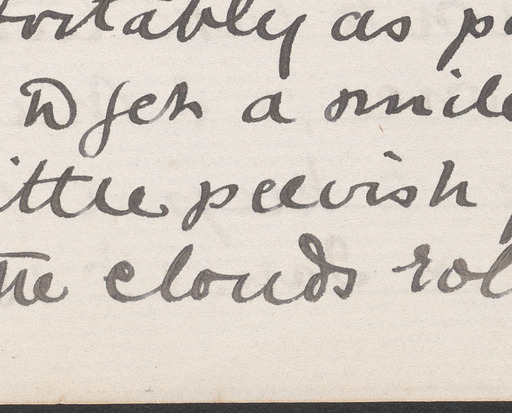 ortably as p
to get a smile
ittle peevish
the clouds rol